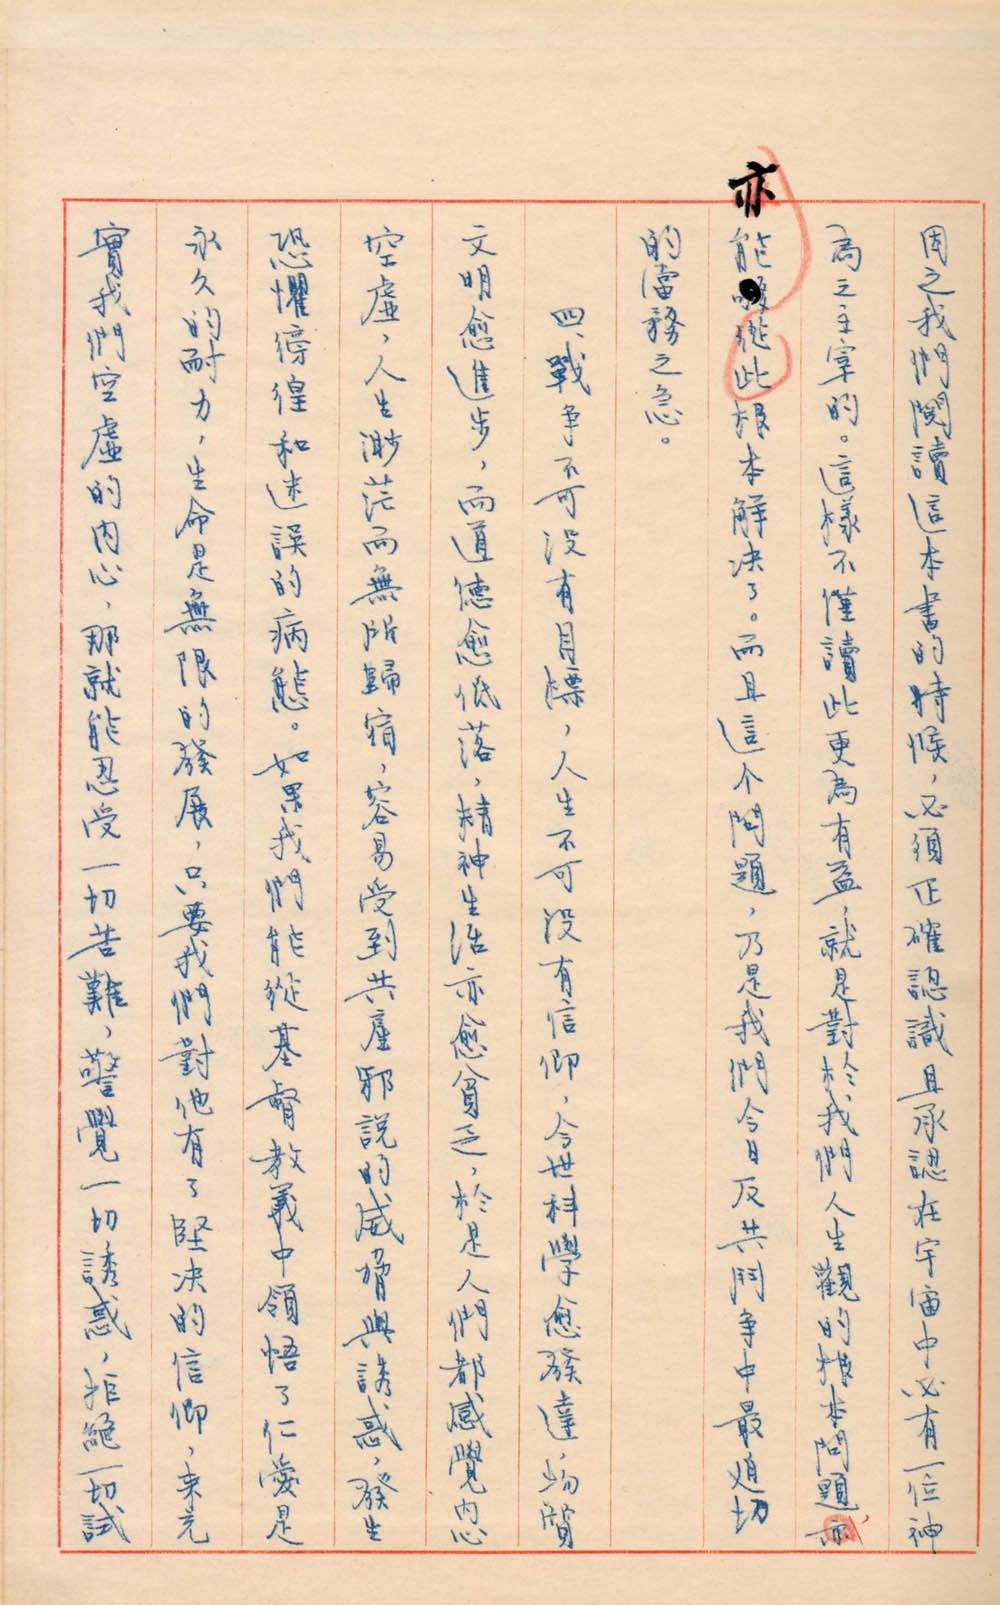 因之我們閱讀這本書的時候，必須正確認識且承認在宇宙中必有一位神
為之主宰的。這樣不僅讀此更為有益，就是對於我們人生觀的根本問題，亦
亦能從此根本解決了。而且這个問題，乃是我們今日反共鬥爭中最迫切
的當務之急。
四、戰爭不可沒有目標，人生不可沒有信仰，今世科學愈發達，物質
文明愈進步，而道德愈低落，精神生活亦愈貧乏，於是人們都感覺內心
空虛，人生渺茫而無所歸宿，容易受到共產邪說的威脅與誘惑，發生
恐懼徬徨和迷誤的病態。如果我們能從基督教義中領悟了仁愛是
永久的耐力，生命是無限的發展，只要我們對他有了堅決的信仰，來充
實我們空虛的內心，那就能忍受一切苦難，警覺一切誘惑，拒絕一切試